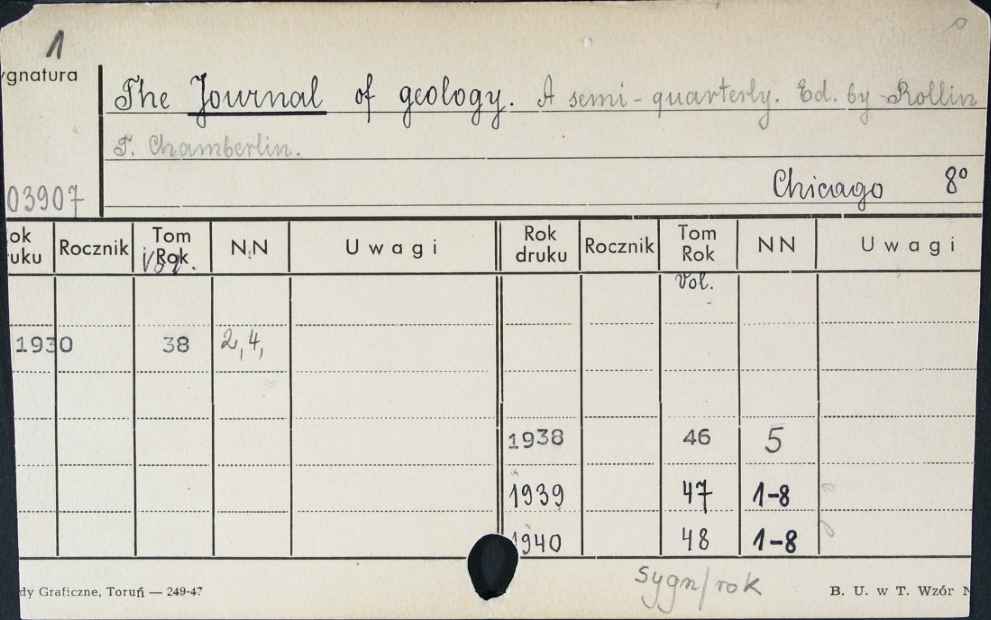 1
ygnatura
The Journal of geology. A semi-quarterly. Ed. by Rollin
T. Chamberlin.
03907
Chicago 8°
ok Rocznik Tom N.N Uwagi Rok Rocznik Tom NN Uwagi
uku Rok druku Rok
Vol. Vol.
1930 38 2,4,
1938 46 5
1939 47 1-8
1940 48 1-8
Sygn/rok
dy Graficzne, Toruń — 249-47 B. U. w T. Wzór N